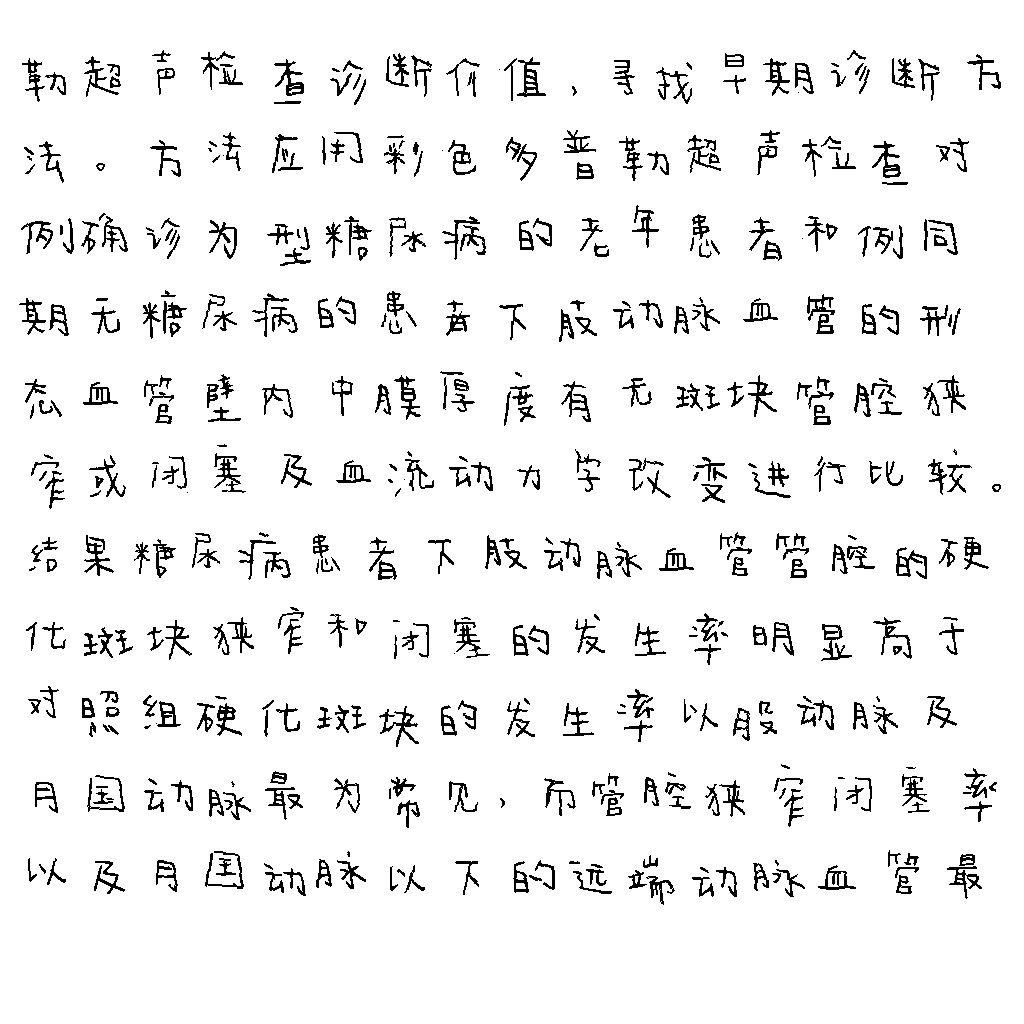 勒超声检查诊断价值,寻找早期诊断方
法。方法应用彩色多普勒超声检查对
例确诊为型糖尿病的老年患者和例同
期无糖尿病的患者下肢动脉血管的形
态血管壁内中膜厚度有无斑块管腔狭
窄或闭塞及血流动力学改变进行比较。
结果糖尿病患者下肢动脉血管管腔的硬
化斑块狭窄和闭塞的发生率明显高于
对照组硬化斑块的发生率以股动脉及
月国动脉最为常见,而管腔狭窄闭塞率
以及月国动脉以下的远端动脉血管最